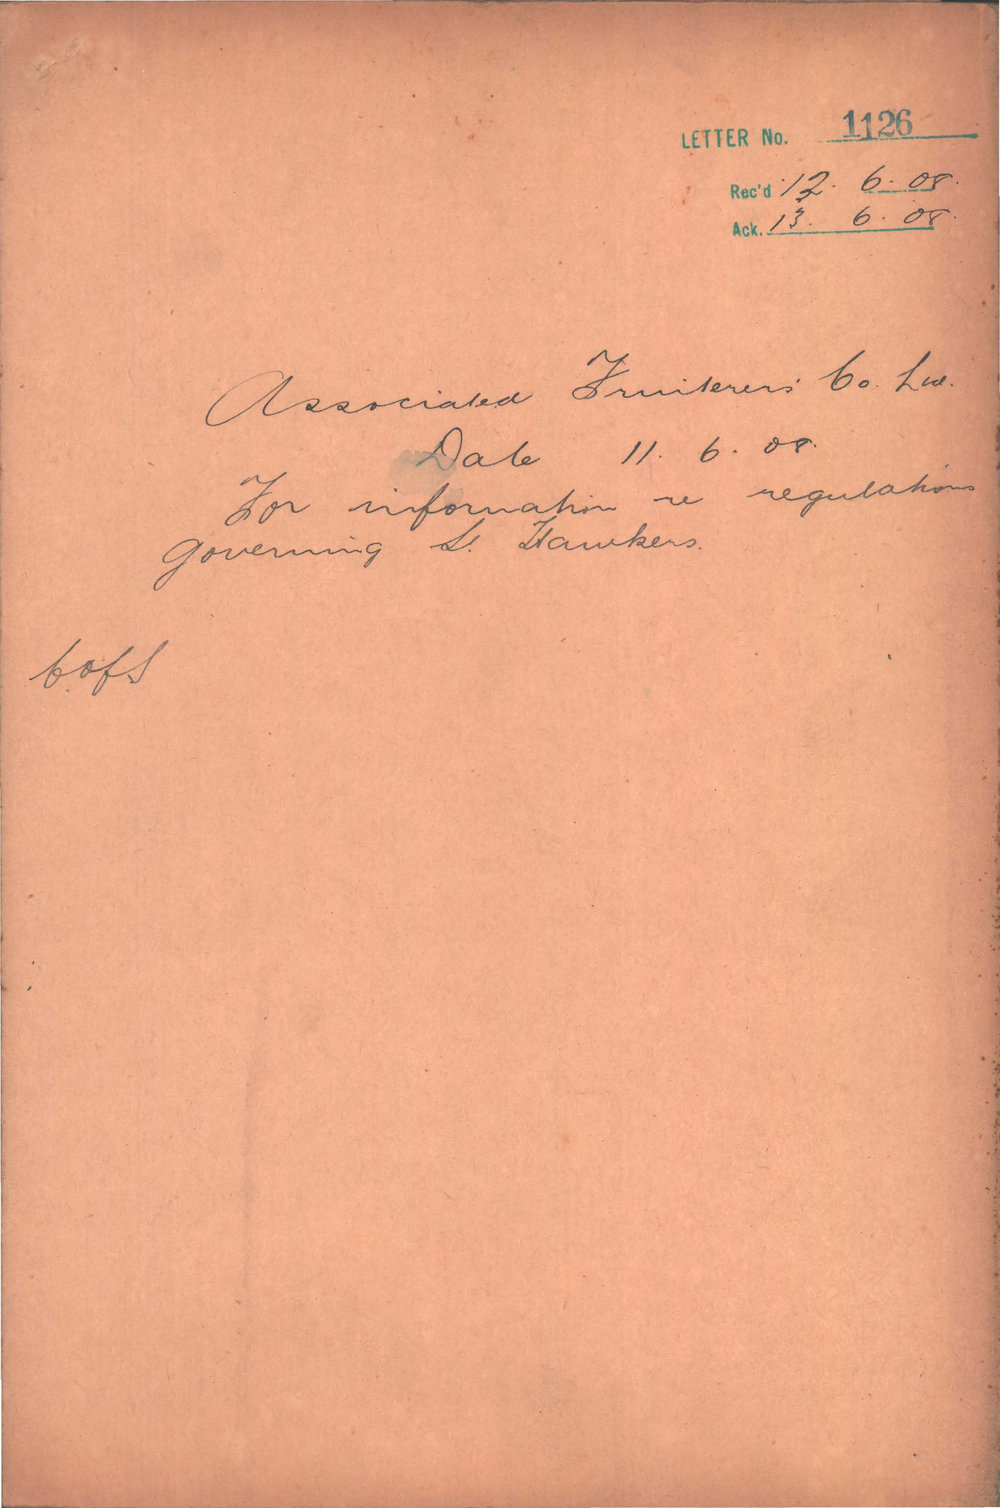 LETTER No. 1126
Rec'd 12. 6. 08.
Ack. 13. 6. 08.
Associated Fruiterers' Co. Ltd.
Date 11. 6. 08.
For information re regulations
governing St. Hawkers.
C of S